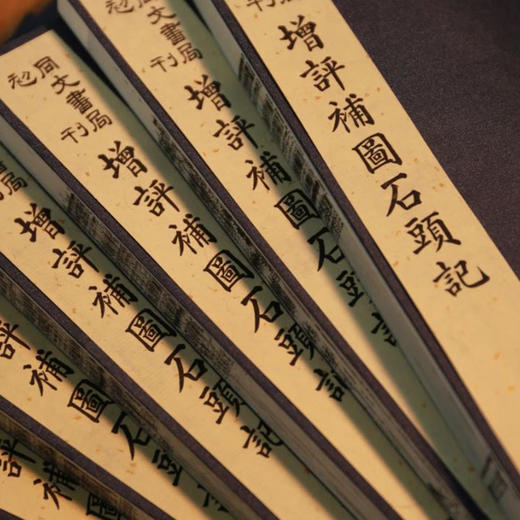 刊
增評補圖石頭記
同文書局
初刊
增評補圖石頭記
同文書局
初刊
增評補圖石頭記
局
增評補圖石頭記
評補圖石頭
評補圖